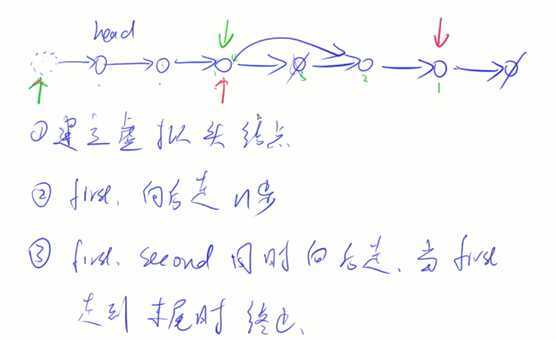 head
3 2 1
①建立虚拟头结点
② first. 向后走 n步
③ first. second 同时向后走、当 first
走到 末尾时 终止.